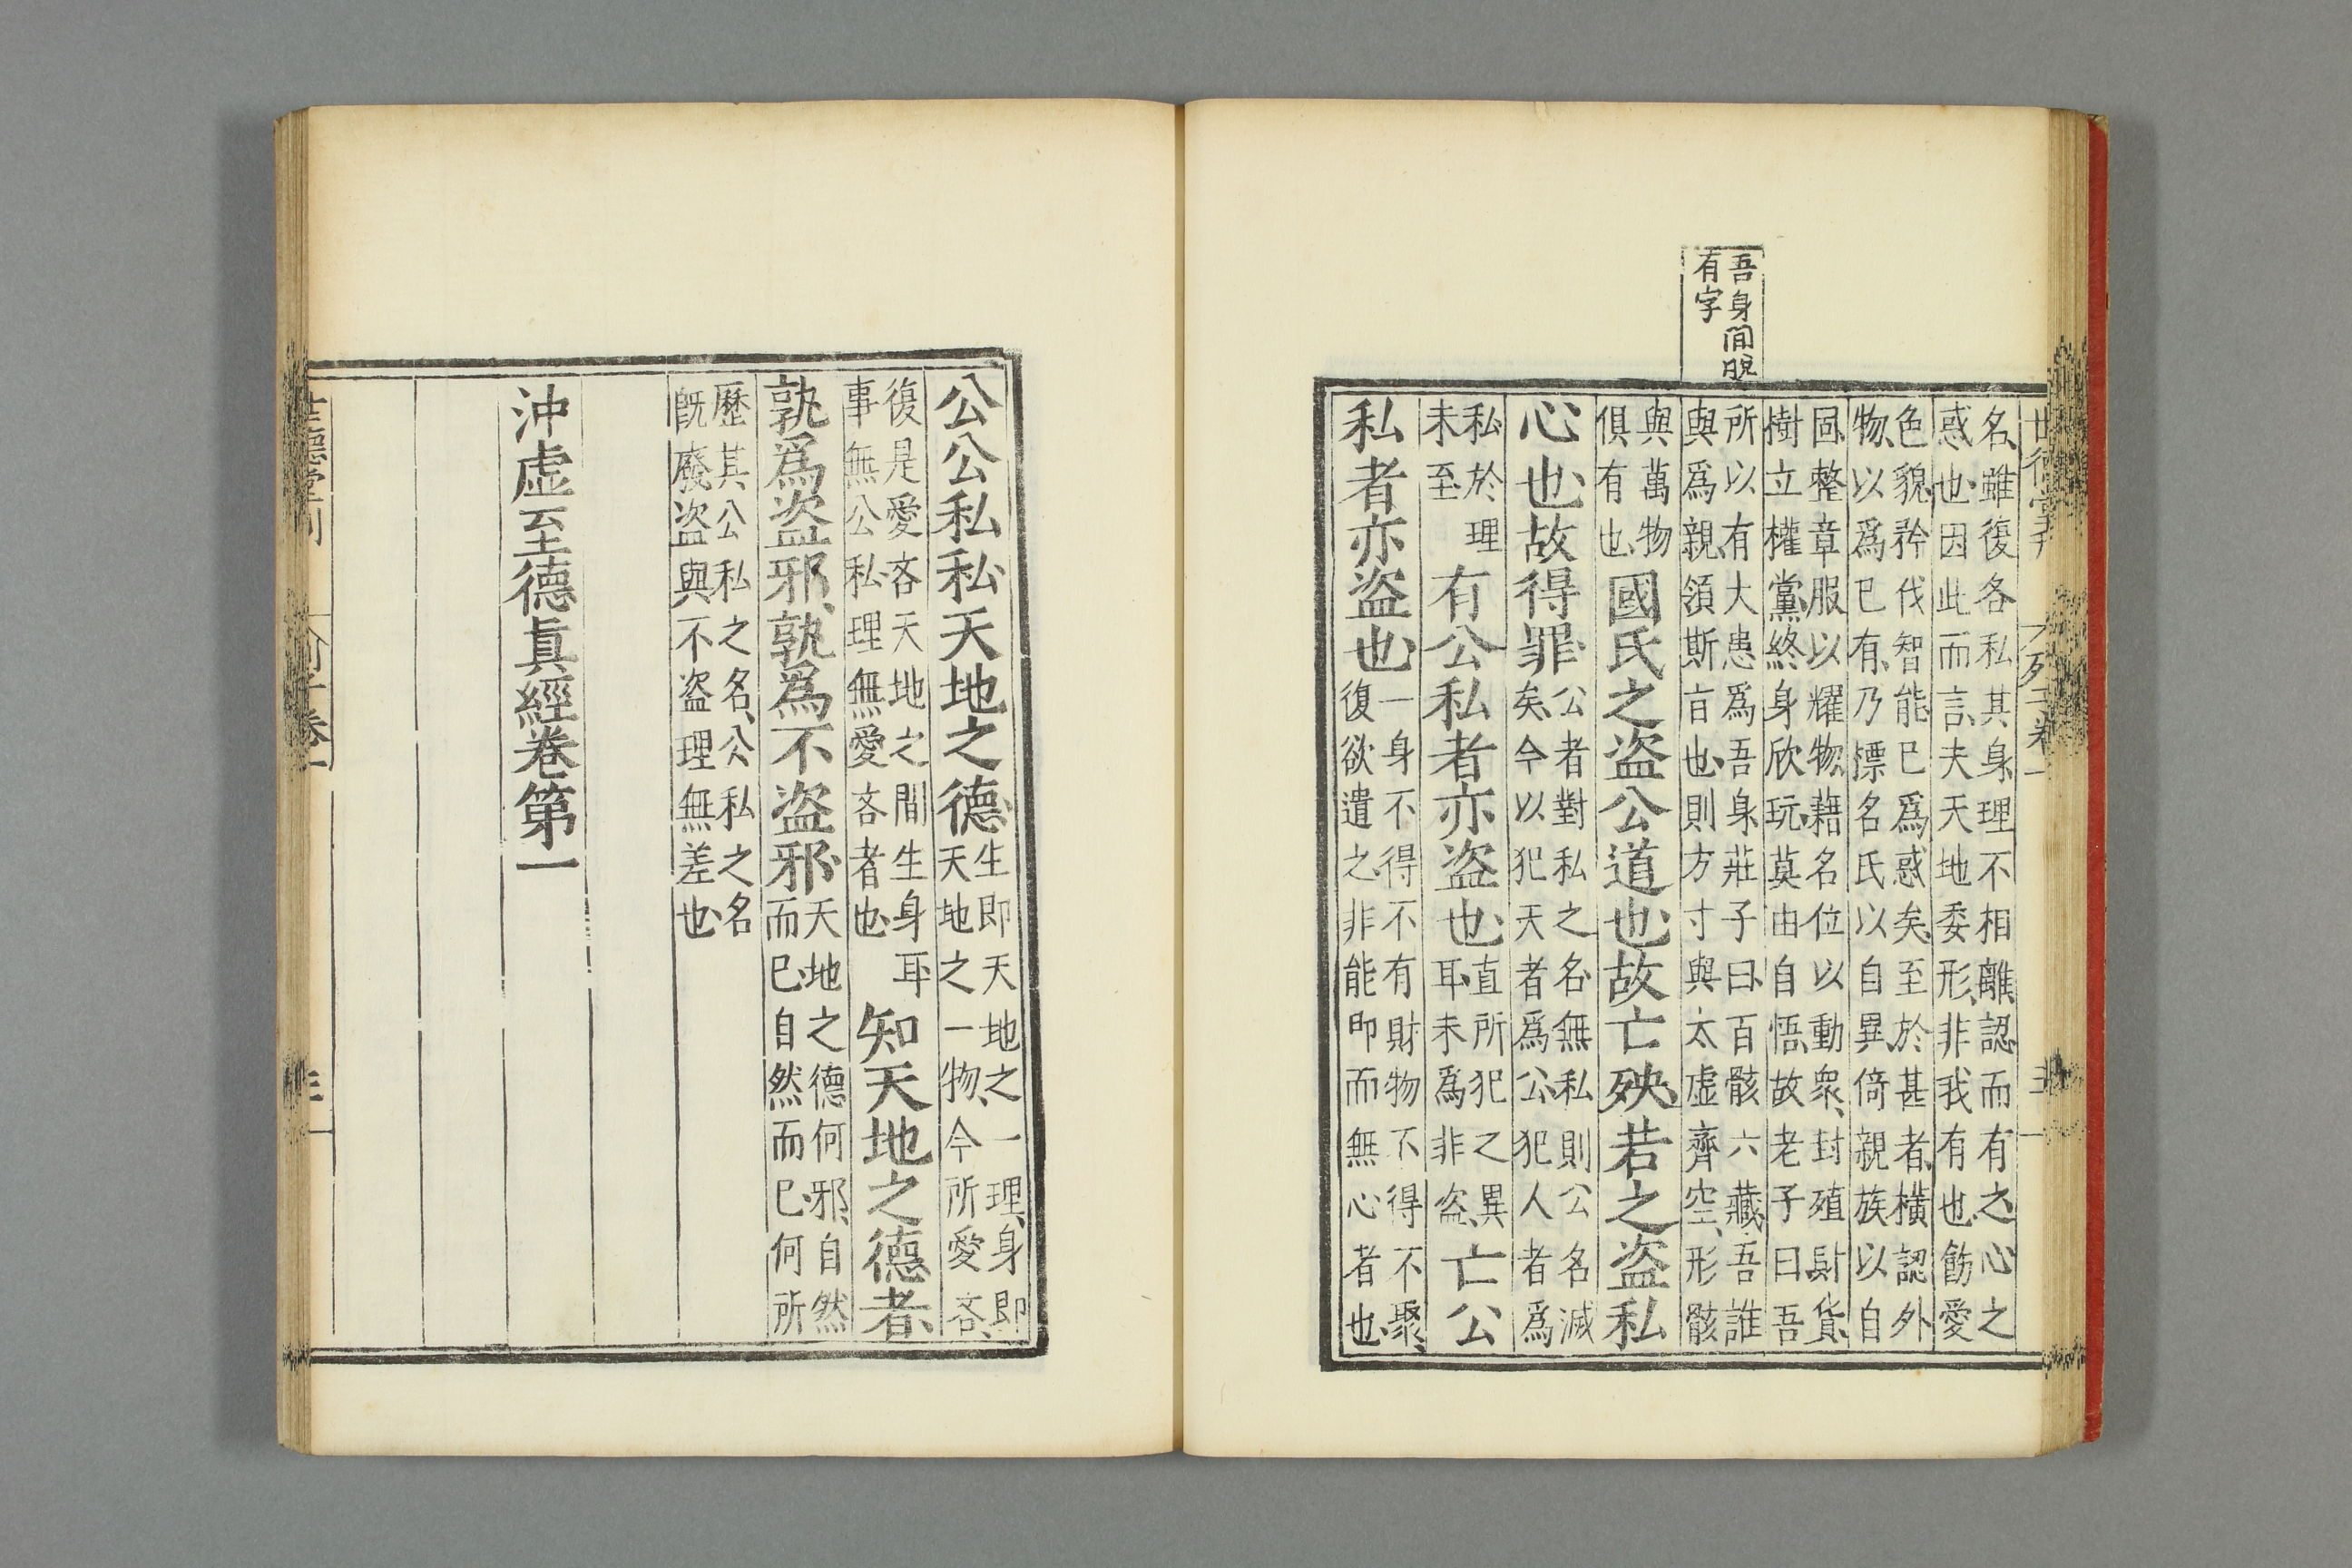 吾身間脫
有字
名雖復各私其身理不相離認而有之心之
惑也因此而言夫天地委形非我有也飭愛
色貌矜伐智能已爲惑矣至於甚者橫認外
物以爲已有乃標名氏以自異倚親族以自
固整章服以耀物藉名位以動衆封殖財貨
樹立權黨終身欣玩莫由自悟故老子曰吾
所以有大患爲吾身莊子曰百骸六藏吾誰
與爲親領斯旨也則方寸與太虛齊空形骸
與萬物
俱有也
國氏之盜公道也故亡殃若之盜私
心也故得罪
公者對私之名無私則公名滅
矣今以犯天者爲公犯人者爲
私於理
未至
有公私者亦盜也
直所犯之異
耳未爲非盜
亡公
私者亦盜也
一身不得不有財物不得不聚
復欲遣之非能即而無心者也
公公私私天地之德
生即天地之一理身即
天地之一物今所愛吝
復是愛吝天地之間生身耳
事無公私理無愛吝者也
知天地之德者
孰爲盜邪孰爲不盜邪
天地之德何邪自然
而已自然而已何所
歷其公私之名公私之名
旣廢盜與不盜理無差也
沖虛至德眞經卷第一